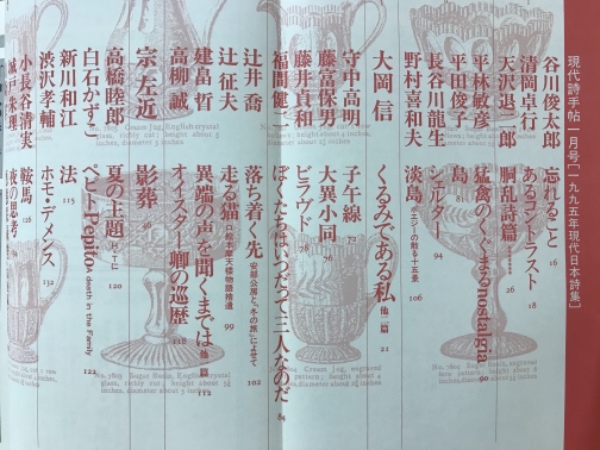 現代詩手帖一月号[一九九五年現代日本詩集]
谷川俊太郎 忘れること 16
清岡卓行 あるコントラスト 18
天沢退二郎 胴乱詩篇 26
平林敏彦 猛禽のくぐまるnostalgia 90
平田俊子 島 81
長谷川龍生 シェルター 94
野村喜和夫 淡島 ポエジーの散る十五景 106
大岡信 くるみである私 他一篇 21
守中高明 子午線 72
藤富保男 大異小同 26
藤井貞和 ピラウド 76
福間健二 ぼくたちはいつだって三人なのだ 84
辻井喬 落ち着く先 安部公房と、「冬の旅」によせて 102
辻征夫 走る猫 99
建畠晢 異端の声を聞くまでは 他一篇 112
高柳誠 オイスター卿の巡歴 118
宗左近 影葬 96
高橋睦郎 夏の主題 H・Tに 120
白石かずこ ペピトPepito A death in the Family 122
新川和江 法 115
渋沢孝輔 ホモ・デメンス 132
小長谷清実 鞍馬 126
城戸朱理 夜の思考